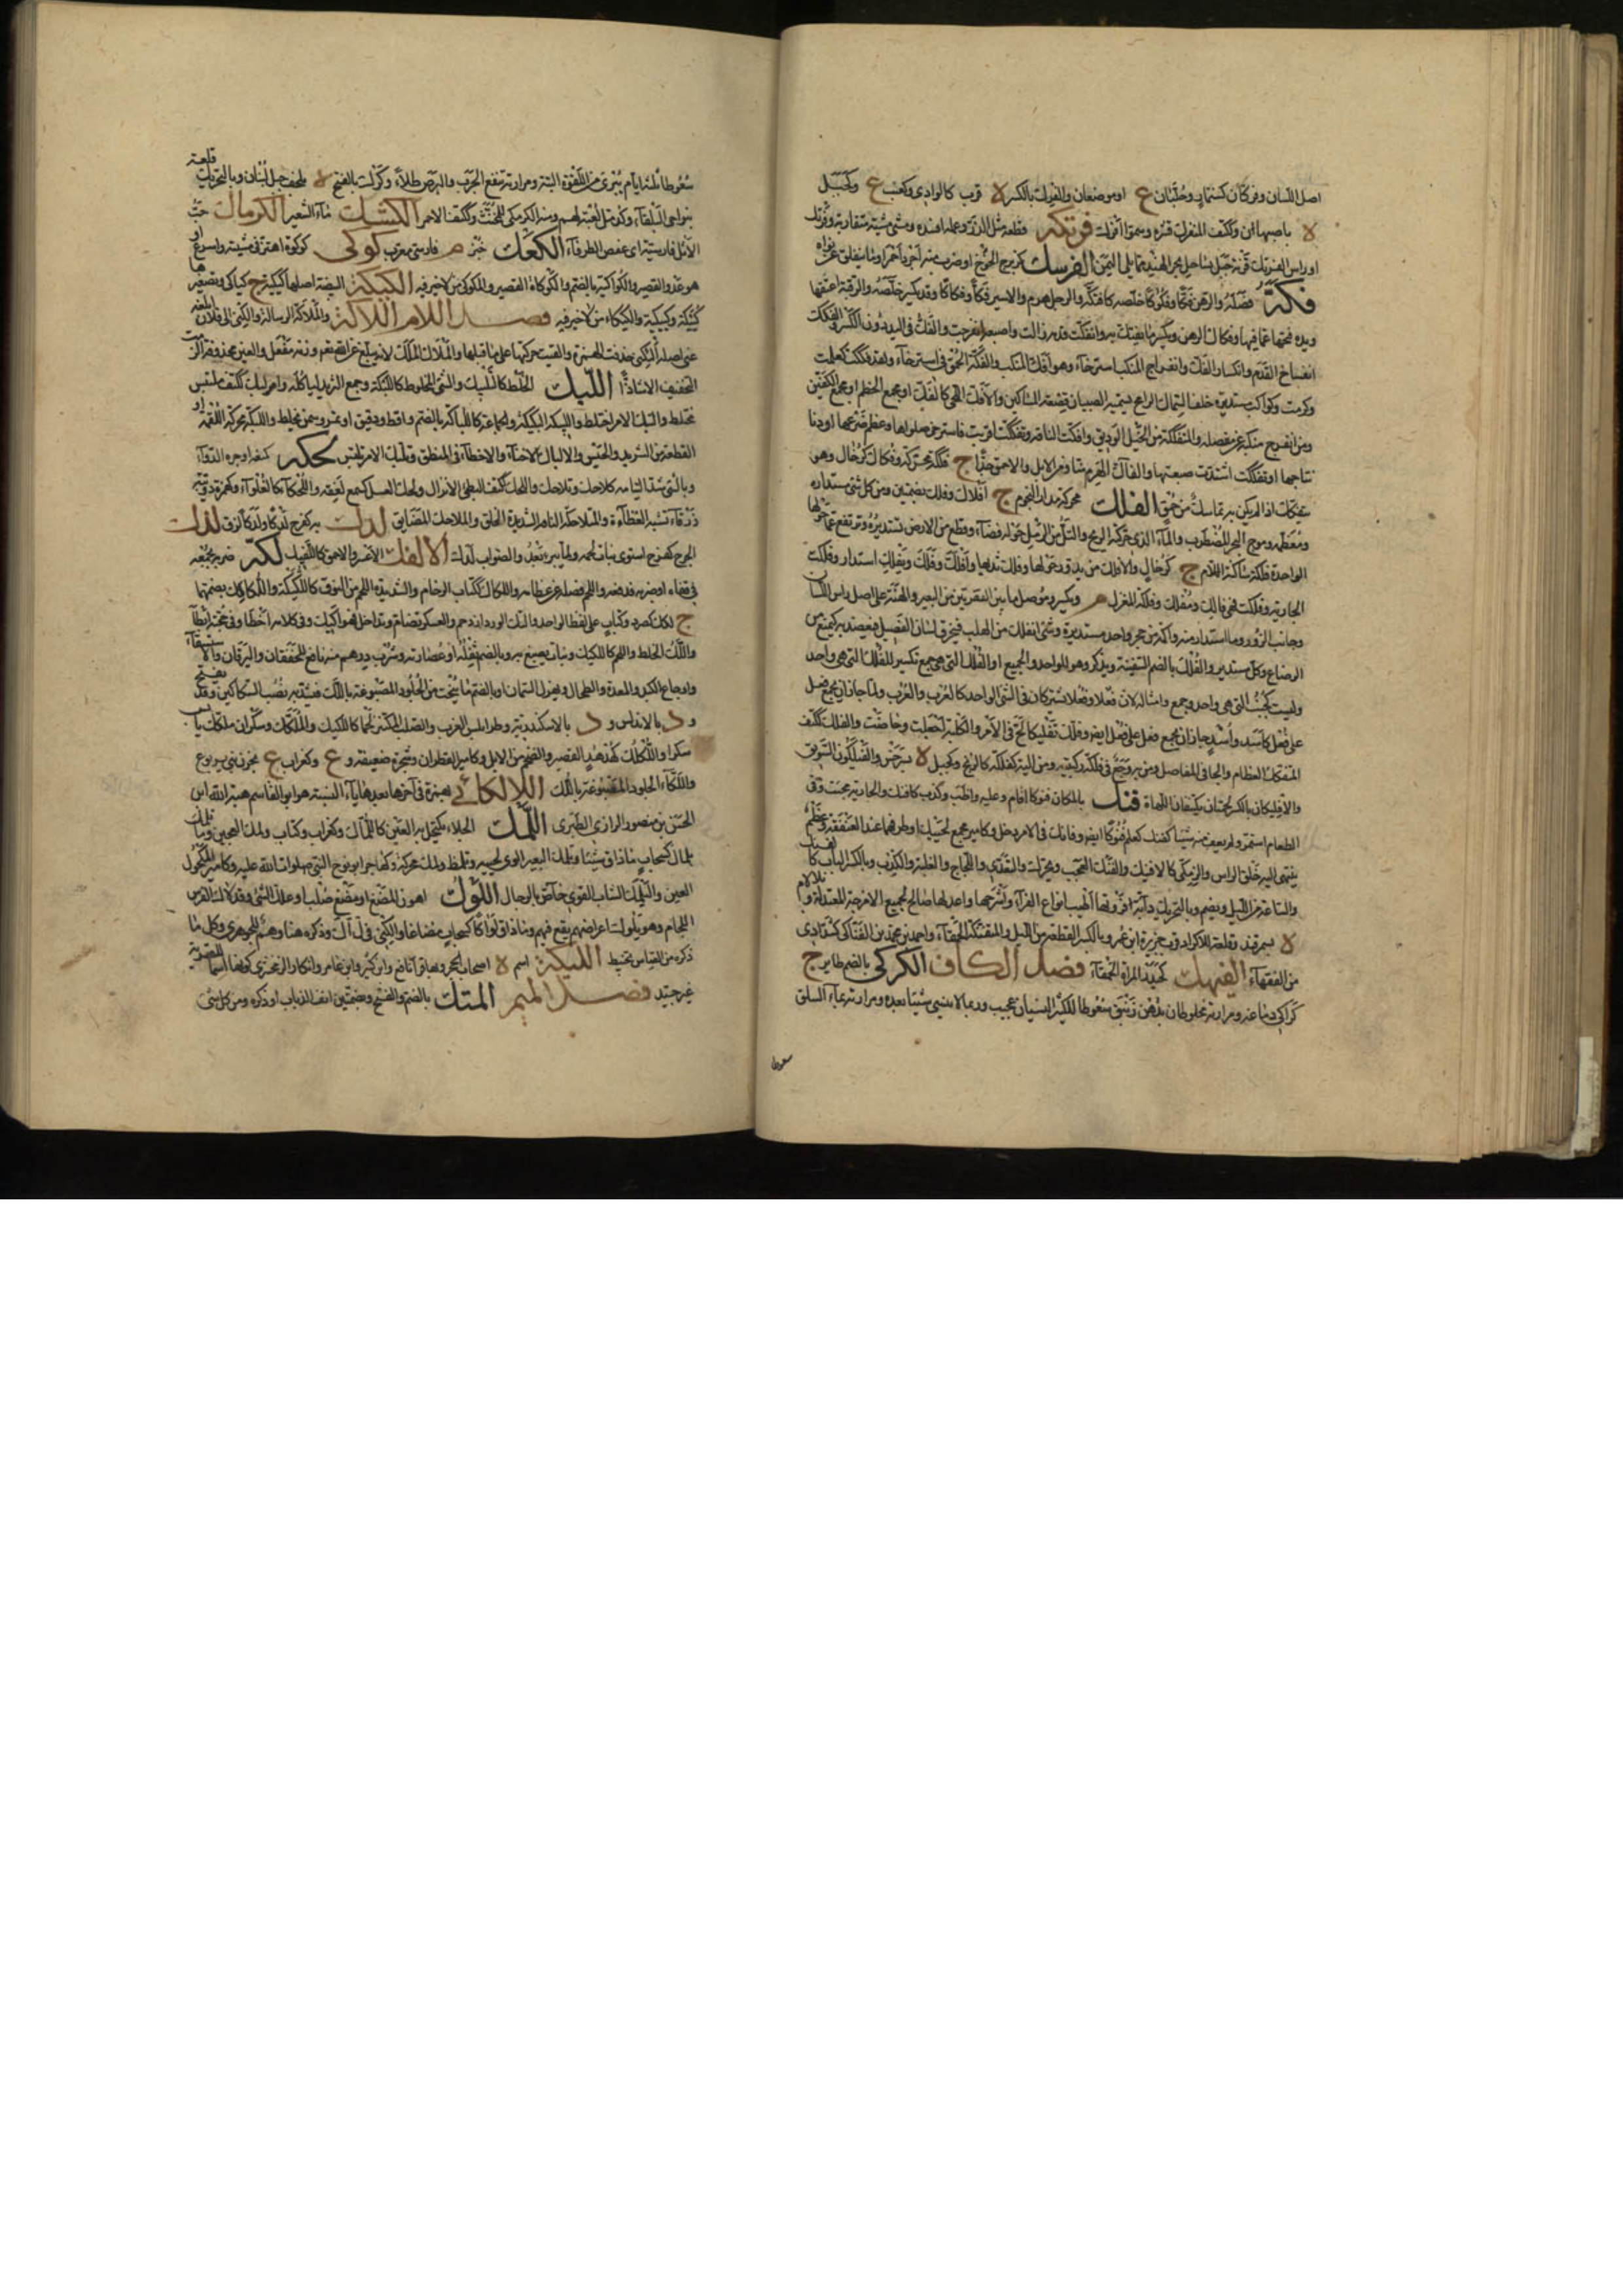 اصل اللسان وفركان كسنمار وجلبان ع او موضعان والفرك بالكسر لا قرب كالواذى وكعنب ع وكجبل
لا باصبهان وككتف المتفرك قشره وسموا افرك فرتكه قطعه مثل الذر وعمله افسده ومشى مشية متقاربة وفرتك
او راس الفرتك قرنة جبل بساحل بحر الهند مما يلى اليمن الفرسك كزبرج الخوخ او ضرب منه اجرد احمر او ما ينفلق عن نواه
فكه فصله والرهن فكا وفكوكا خلصه كافتكه والرجل هرم والاسير فكا وفكاكا وقد يكسر خلصه والرقبة اعتقها
ويده فتحها عما فيها وفكاك الرهن ويكسر ما يفتك به وانفكت قدمه زالت واصبعه انفرجت والفك فى اليد دون الكسر والفكك
انفساخ القدم وانكسار الفك وانفراج المنكب استرخاء وهو افك المنكب والفكة الحمق فى استرخاء ولقد فككت كعلمت
وكرمت وكواكب مستديرة خلف السماك الرامح تسميه الصبيان قصعة المساكين والافك اللحى كالفك او مجمع الخطم او مجمع الفكين
ومن انفرج منكبه عن مفصله والمتفككة من الخيل الوديق وافكت الناقة وتفككت اقربت فاسترخى صلواها وعظم ضرعها او دنا
نتاجها او تفككت اشتدت ضبعتها والفاك الهرم منا ومن الابل والاحمق جدا ج فككة محركة وفكاك كرخال وهو
يتفكك اذا لم يكن به تماسك من حمق الفلك محركة مدار النجوم ج افلاك وفلك بضمتين ومن كل شئ مستداره
ومعظمه وموج البحر المضطرب والماء الذى حركته الريح والتل من الرمل حوله فضاء وقطع من الارض تستدير وترتفع عما حولها
الواحدة فلكة ساكنة اللام ج كرخال والافلك من يدور حولها وفلك ثديها وافلك وفلك وتفلك استدار وفلكت
الجارية وفلكت فهى فالك ومفلك وفلكة المغزل م ويكسر وموصل ما بين الفقرتين من البعير والهنة على اصل راس اللسان
وجانب الزور وما استدار منه واكمة من حجر واحد مستديرة وشئ يفلك من الهلب فيخرق لسان الفصيل فيعضد به ليمنع من
الرضاع وكل مستدير والفلك بالضم السفينة ويذكر وهو للواحد والجميع او الفلك التى هى جمع تكسير للفلك التى هى واحد
وليست كجنب التى هى واحد وجمع وامثاله لان فعلا وفعلا يشتركان فى الشئ الواحد كالعرب والعرب ولما جاز ان يجمع فعل
على فعل كاسد واسد جاز ان يجمع فعل على فعل ايضا وفلك تفليكا لج فى الامر والكلبة اجعلت وحاضت والفلك ككتف
المتفكك العظام والجافى المفاصل ومن به وجع فى فلكة ركبته ومن الية كفلكة كالزنج وكجبل لا بسرخس والفيلكون الشوبق
والافليكان بالكسر لحمتان تكتنفان اللهاة فنك بالمكان فنوكا اقام وعليه واظب وكذب كافنك والجارية مجنت وفى
الطعام استمر ولم يعف منه شيئا كفنك كعلم فنوكا ايضا وفانك فى الامر دخل وكامير مجمع لحييك او طرفهما عند العنفقة وعظم
ينتهى اليه حلق الراس والزمكى كالافنيك والفنك العجب ويحرك والتعدى واللجاج والغلبة والكذب وبالكسر الباب كالفنيك
والساعة من الليل ويضم وبالتحريك دابة فروتها اطيب انواع الفراء واشرحها واعدلها صالح لجميع الامزجة المعتدلة وبلا لام
لا بسمرقند وقلعة للاكراد قرب جزيرة ابن عمر وبالكسر القطعة من الليل والمتفنكة الحمقاء واحمد بن محمد بن الفناكى كشدادى
من الفقهاء الفيهك كحيدر المراة الحمقاء فصل الكاف الكركى بالضم طاير ج
كراكى دماغه ومرارته مخلوطان بدهن زنبق سعوطا للكثير النسيان عجيب وربما لا ينسى شيئا بعده ومرارته بماء السلق
سعوطا
سعوطا ثلثة ايام تبرئ من اللقوة البتة ومرارته تنفع الجرب والبرص طلاء وكرك بالفتح لا لحف جبل لبنان وبالتحريك قلعة
بنواحى البلقاء وكدمل لعبة لهم ومنه الكركى للمخنث وككتف الاحمر الكشك ماء الشعير الكزمازك حب
الاثل فارسية اى عفص الطرفاء الكعك خبز م فارسى معرب كوكى كوكوة اهتز فى مشيته واسرع او
هو عدو القصير والكواكية بالضم والكوكاة القصير والمكوكى من لا خير فيه الكيكة البيضة اصلها كيكية ج كياكى وتصغيرها
كييكة وكييكية والكيكاء من لا خير فيه فصل اللام اللاكة والملاكة الرسالة والكنى الى فلان ابلغه
عنى اصله الئكنى حذفت الهمزة والقيت حركتها على ما قبلها والملاك الملك لانه يبلغ عن الله تعالى وزنه مفعل والعين محذوفة الزمت
التخفيف الا شاذا اللبك الخلط كالتلبيك والشئ المخلوط كاللبكة وجمع الثريد لياكله وامر لبك ككتف ملتبس
مختلط والتبك الامر اختلط واللبيكة البكيلة والجماعة كاللباكة بالضم واقط ودقيق او تمر وسمن يخلط واللبكة محركة اللقمة او
القطعة من الثريد والحيس والالباك الاخناء والاخطاء فى المنطق وتلبك الامر تلبس لحكه كمنعه اوجره الدواء
وبالشئ شد التيامه كلاحك وتلاحك واللحك ككتف البطئ الانزال ولحك العسل كسمع لعقه واللحكاء كالغلواء وكهمزة دويبة
زرقاء تشبه العظاءة والمتلاحكة الناقة الشديدة الخلق والملاحك المضايق لدك به كفرح لدكا ولدكا لزق لذك
الجرح كفرح استوى نبات لحمه ولما يبرا بعد والصواب لمذك الالفك الاعسر والاحمق كاللفيك لكه ضربه بجمعه
فى قفاه او ضربه فدفعه واللحم فصله عن عظامه واللكاك ككتاب الزحام والشديدة اللحم من النوق كاللكيكة واللكالك بضمهما
ج لكك كصرد وكتاب على لفظ الواحد والتك الورد ازدحم والعسكر تضام وتداخل فهو لكيك وفى كلامه اخطا وفى حجته ابطا
واللك الخلط واللحم كاللكيك ونبات يصبغ به وبالضم ثفله او عصارته وشرب درهم منه نافع للخفقان واليرقان والاستسقاء
واوجاع الكبد والمعدة والطحال ويهزل السمان او بالضم ما ينحت من الجلود المصبوغة باللك فيشد به نصب السكاكين وقد يفتح
و د بالاندلس و د بالاسكندرية وطرابلس الغرب والصلب المكتنز لحما كاللكيك والملكك وسكران ملتك يابس
سكرا واللكلك كهدهد القصير والضخم من الابل وكامير القطران وشجرة ضعيفة و ع وكغراب ع بحزن بنى يربوع
واللكاء الجلود المصبوغة باللك اللالكائى بهمزة فى آخرها بعدها ياء النسبة هو ابو القاسم هبة الله ابن
الحسن بن منصور الرازى الطبرى اللمك الجلاء يكتحل به العين كاللماك وكغراب وكتاب ولمك العجين وما تلمك
بلماك كسحاب ما ذاق شيئا وتلمك البعير لوى لحييه وتلمظ ولمك محركة وكهاجر ابو نوح النبى صلوات الله عليه وكامير المكحول
العين واليلمك الشاب القوى خاص بالرجال اللوك اهون المضغ او مضغ صلب او علك الشئ وقد لاك الفرس
اللجام وهو يلوك اعراضهم يقع فيهم وما ذاق لواكا كسحاب مضاغا والكنى فى ل ا ك وذكره هنا وهم للجوهرى وكل ما
ذكره من القياس تخبيط الليكة اسم لا اصحاب الحجر وبها قرا نافع وابن كثير وابن عامر وانكار الزمخشرى كونها اسما للقرية
غير جيد فصل الميم المتك بالضم والفتح وبضمتين انف الذباب او ذكره ومن كل شئ